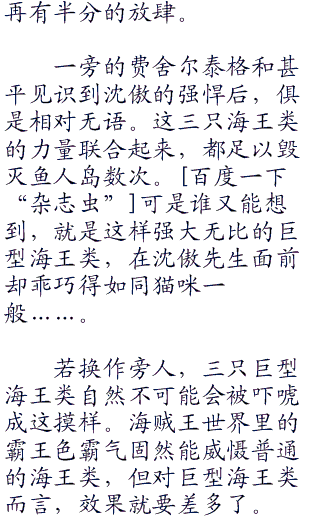 再有半分的放肆。
一旁的费舍尔泰格和甚
平见识到沈傲的强悍后，俱
是相对无语。这三只海王类
的力量联合起来，都足以毁
灭鱼人岛数次。[百度一下
“杂志虫”]可是谁又能想
到，就是这样强大无比的巨
型海王类，在沈傲先生面前
却乖巧得如同猫咪一
般……。
若换作旁人，三只巨型
海王类自然不可能会被吓唬
成这摸样。海贼王世界里的
霸王色霸气固然能威慑普通
的海王类，但对巨型海王类
而言，效果就要差多了。